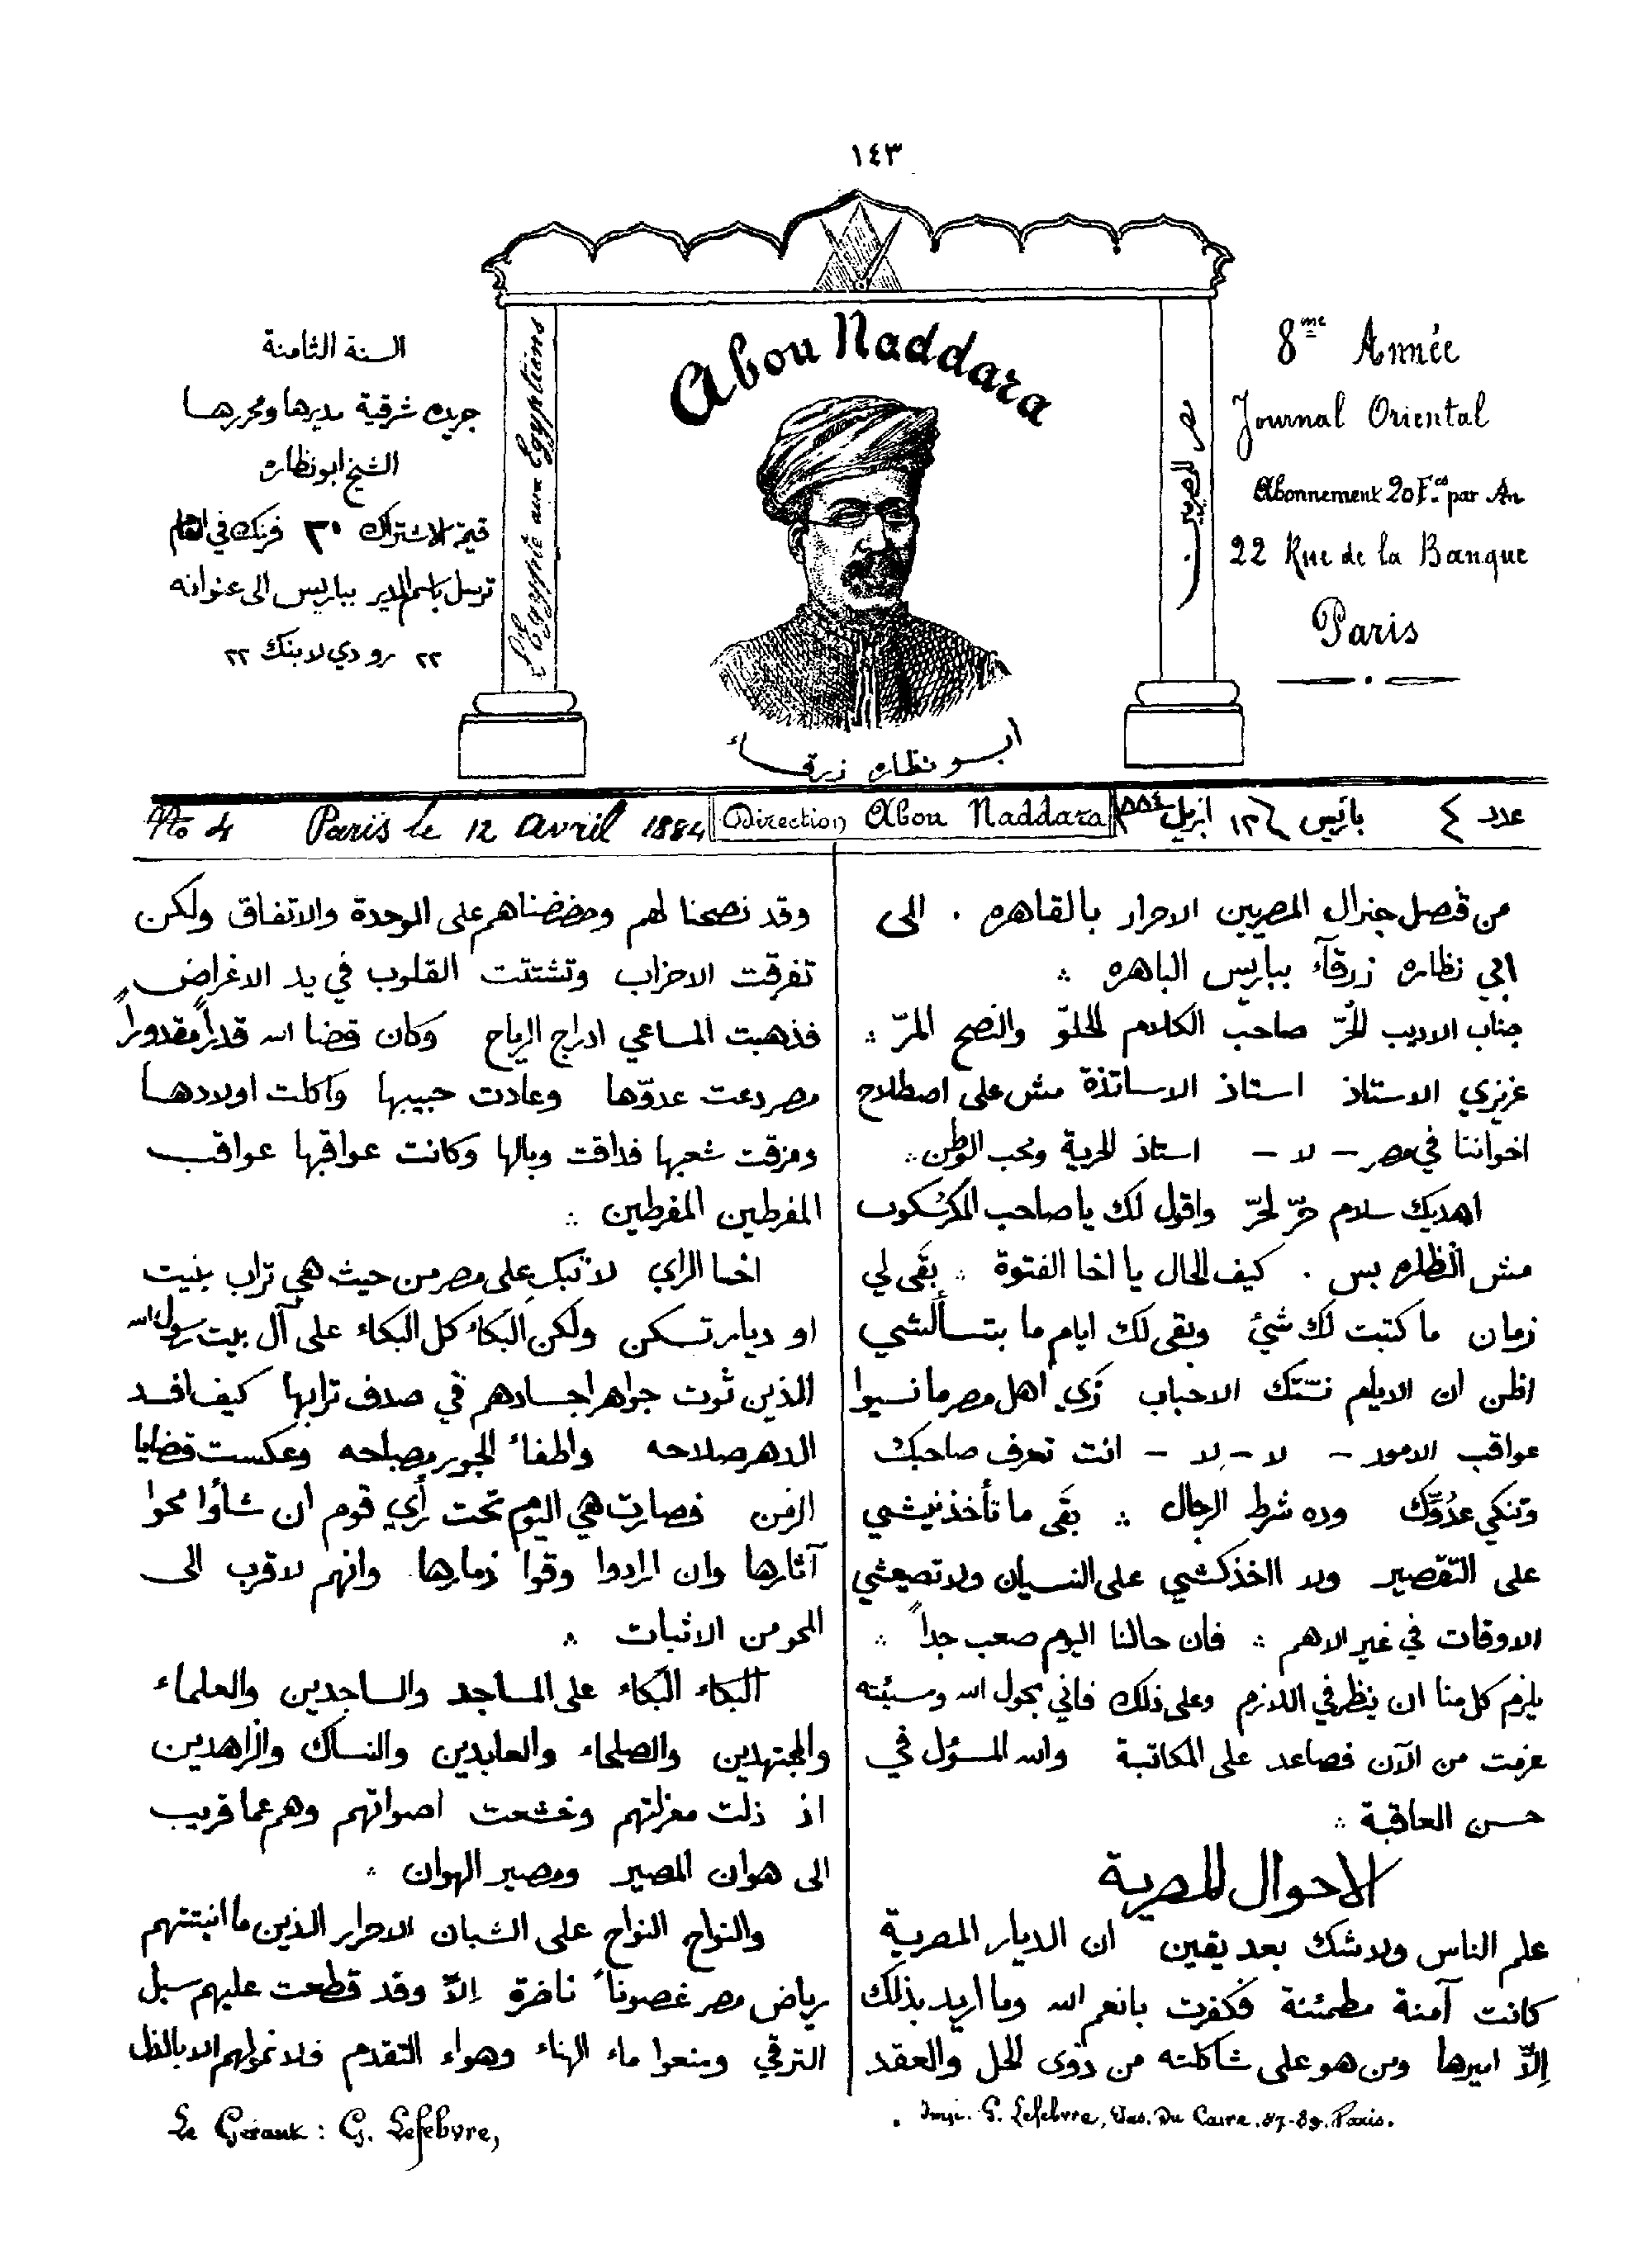 ١٤٣
السنة الثامنة
جريده شرقية مديرها ومحررها
الشيخ ابو نظاره
قيمة الاشتراك ٣٠ فرنك في العام
ترسل باسم المدير بباريس الى عنوانه
٢٢ رو دي لا بنك ٢٢
L'Egypte aux Egyptiens
Abou Naddara
ابو نظاره زرقاء
مصر للمصريين
8me Année
Journal Oriental
Abonnement 20 Fcs par An
22 Rue de la Banque
Paris
No 4 Paris le 12 Avril 1884
Direction Abou Naddara
عدد ٤ باريس ١٢ ابريل
من قنصل جنرال المصريين الاحرار بالقاهره . الى
ابي نظاره زرقآء بباريس الباهره
جناب الاديب الحُرّ صاحب الكلام الحلوّ والنصح المرّ
عزيزي الاستاذ استاذ الاساتذة مش على اصطلاح
اخواننا في مصر – لا – استاذ الحرية ومحب الوطن
اهديك سلام حرّ لحرّ واقول لك يا صاحب المكرسكوب
مش النظاره بس . كيف الحال يا اخا الفتوة بقى لي
زمان ما كتبت لك شئ وبقى لك ايام ما بتسألشي
اظن ان الايام نستك الاحباب زي اهل مصر ما نسيوا
عواقب الامور – لا – لا – انت تعرف صاحبك
وتنكي عدُوّك وده شرط الرجال بقى ما تأخذنيشي
على التقصير ولا ااخذكشي على النسيان ولا تضيعشي
الاوقات في غير الاهم فان حالنا اليوم صعب جداً
يلزم كل منا ان ينظر في اللازم وعلى ذلك فاني بحول الله ومشيئته
عزمت من الآن فصاعد على المكاتبة والله المسؤل في
حسن العاقبة
الاحوال المصرية
علم الناس ولا شك بعد يقين ان الديار المصرية
كانت آمنة مطمئنة فكفرت بانعم الله وما اريد بذلك
إلاّ اميرها ومن هو على شاكلته من ذوى الحل والعقد
وقد نصحنا لهم وحضضناهم على الوحدة والاتفاق ولكن
تفرقت الاحزاب وتشتتت القلوب في يد الاغراض
فذهبت المساعي ادراج الرياح وكان قضا الله قدراً مقدوراً
مصر دعت عدوّها وعادت حبيبها واكلت اولادها
ومزقت شعبها فذاقت وبالها وكانت عواقبها عواقب
المفرطين المفرطين
اخا الراي لا تبك على مصر من حيث هي تراب بنيت
او ديار تسكن ولكن البكاء كل البكاء على آل بيت رسول الله
الذين ثوت جواهر اجسادهم في صدف ترابها كيف افسد
الدهر صلاحه واطفاء الجور مصباحه وعكست قضايا
الزمن فصارت هي اليوم تحت رأي قوم ان شاؤا محوا
آثارها وان ارادوا وقوا ذمارها وانهم لاقرب الى
المحو من الاثبات
البكاء البكاء على المساجد والساجدين والعلماء
والمجتهدين والصلحاء والعابدين والنساك والزاهدين
اذ ذلت منزلتهم وخشعت اصواتهم وهم عما قريب
الى هوان المصير ومصير الهوان
والنواح النواح على الشبان الاحرار الذين ما انبتتهم
رياض مصر غصوناً ناضرة إلاّ وقد قطعت عليهم سبل
الترقي ومنعوا ماء الهناء وهواء التقدم فلا نموّ لهم الا بالذل
Le Gérant : G. Lefebvre,
Imp. G. Lefebvre, Pas. Du Caire. 87-89. Paris.